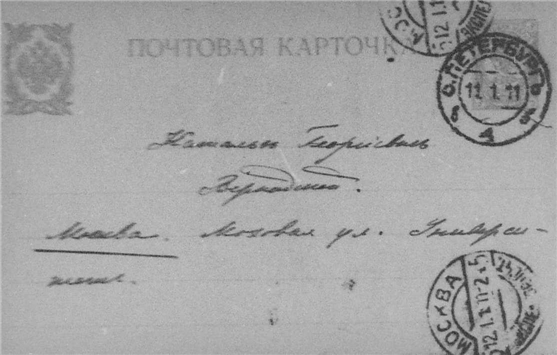 ПОЧТОВАЯ КАРТОЧКА
С. ПЕТЕРБУРГЪ
11.1.11
Наталье Георгіевнѣ
Вернадской.
Москва. Моховая ул. Универси-
тет.
МОСКВА
12.1.11